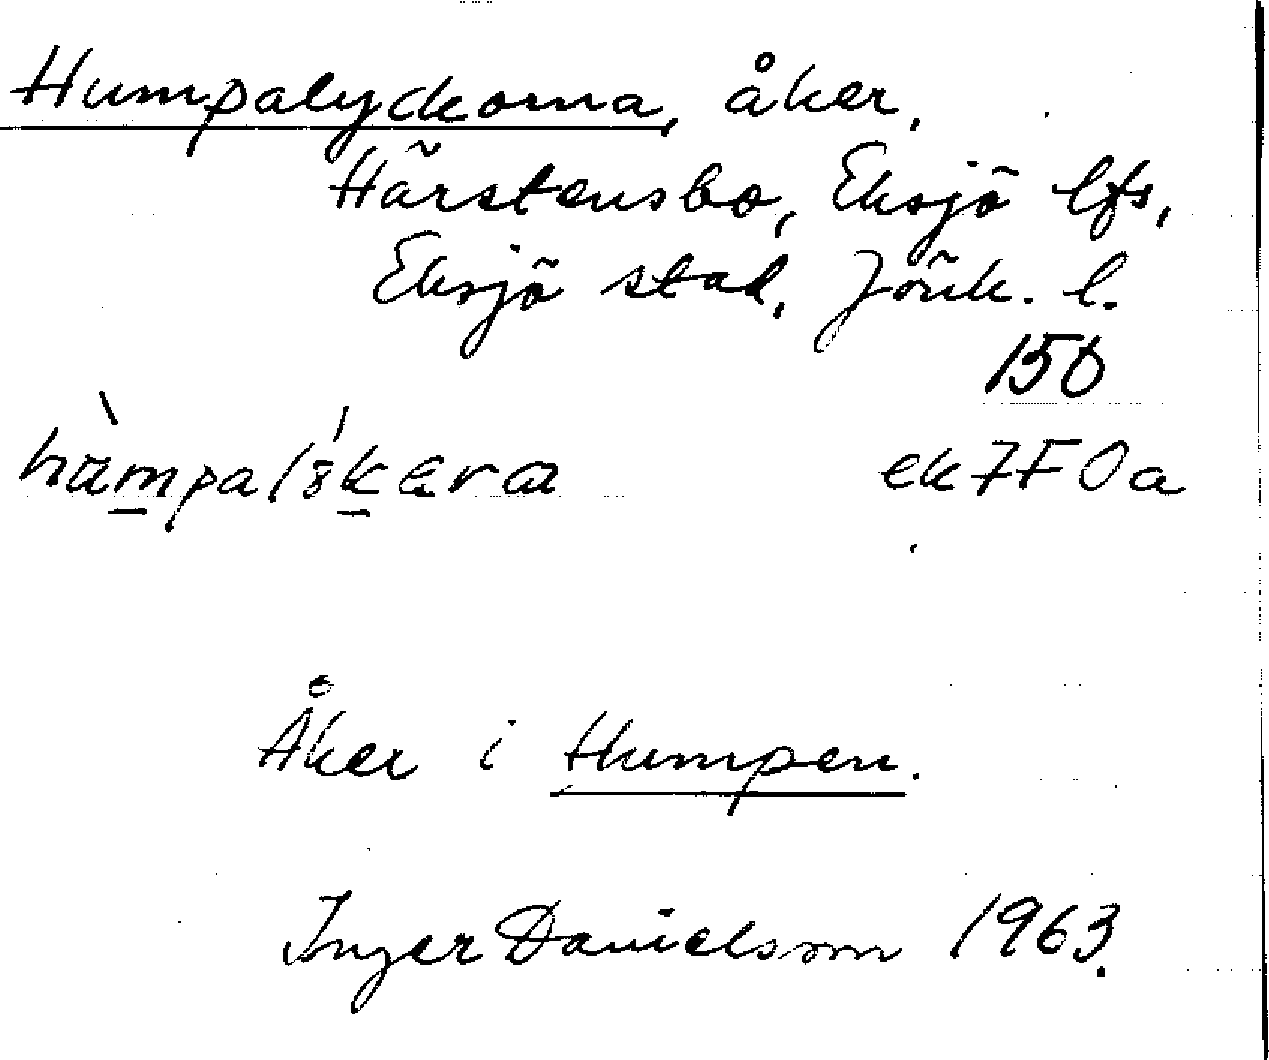 Humpalyckorna, åker.
Härstensbo, Eksjö lfs,
Eksjö stad, Jönk. l.
150
ek 7F 0a
Åker i Humpen.
Inger Danielsson 1963.